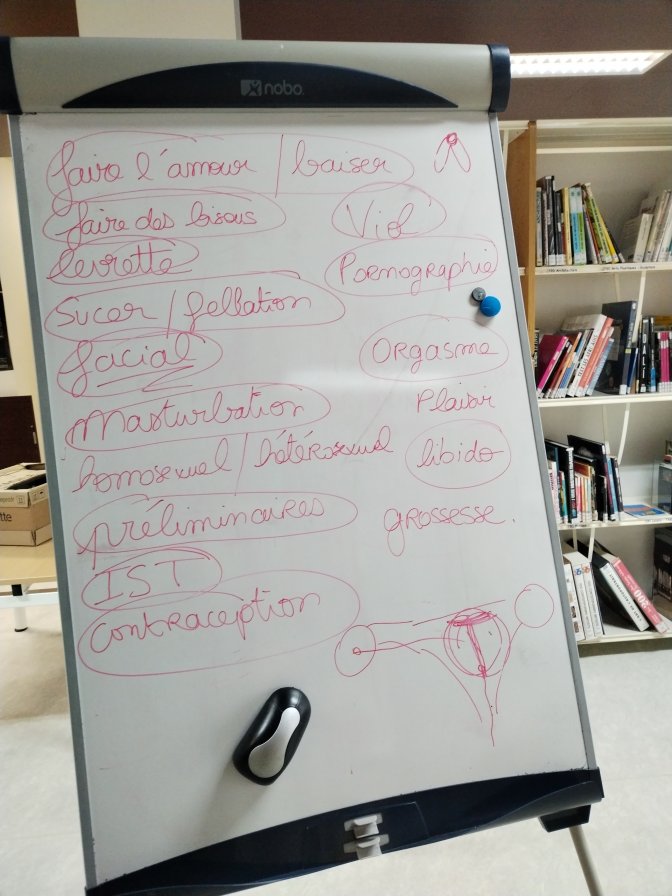 nobo
faire l'amour / baiser
faire des bisous
levrette
sucer / fellation
facial
Masturbation
homosexuel / hétérosexuel
préliminaires
IST
Contraception
Viol
Pornographie
Orgasme
Plaisir
libido
grossesse.